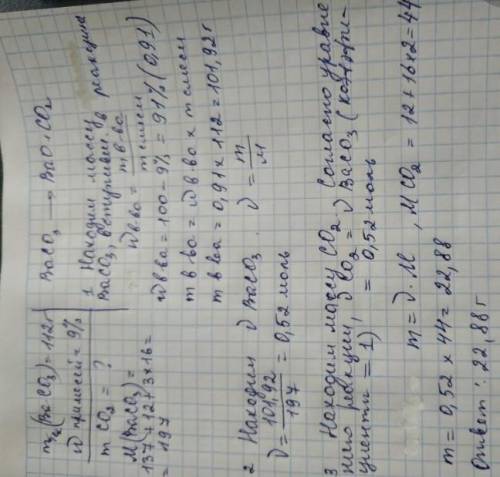 m (BaCO3) = 112 г
ω примесей = 9%
m CO2 = ?
M(BaCO3) =
137+12+3×16=
= 197
BaCO3 → BaO + CO2
1 Находим массу
BaCO3, вступившей в реакцию
ω в-ва = m в-ва / m смеси
ω в-ва = 100 - 9% = 91% (0,91)
m в-ва = ω в-ва × m смеси
m в-ва = 0,91 × 112 = 101,92 г
2 Находим ν BaCO3. ν = m / M
ν = 101,92 / 197 = 0,52 моль
3 Находим массу CO2. Согласно уравне
нию реакции, ν CO2 = ν BaCO3 (коэффи-
циенты = 1) = 0,52 моль
m = ν · M , M CO2 = 12 + 16×2 = 44
m = 0,52 × 44 = 22,88
Ответ: 22,88 г